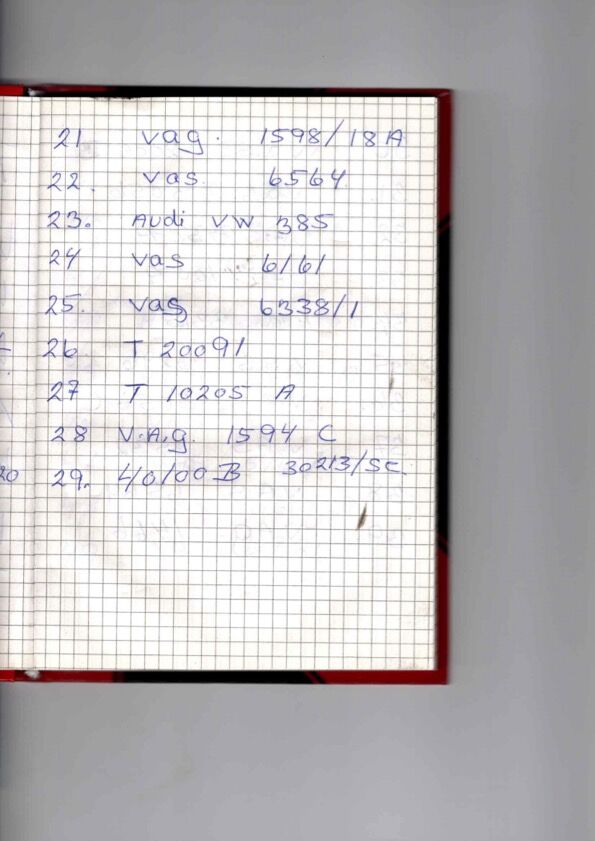 21 vag. 1598/18A
22. vas 6564
23. Audi VW 385
24 vas 6161
25. vag 6338/1
26 T 20091
27 T 10205 A
28 V.A.g. 1594 C
20 29. 40100B 30213/SC.